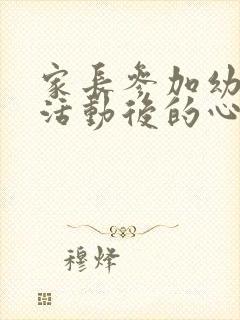 家長參加幼
活動後的心
穆烽